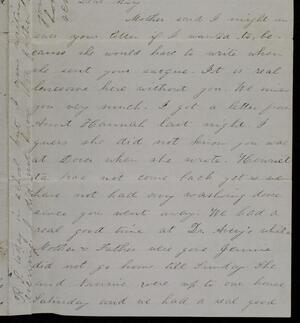 Dear May
Mother said I might an
swer your letter if I wanted to, be-
cause she would have to write when
she sent your sacque. It is real
lonesome here without you. We miss
you very much. I got a letter from
Aunt Hannah last night. I
guess she did not know you was
at Dover when she wrote. Henriet
ta has not come back yet so we
have not had any washing done
since you went away. We had a
real good time at Dr. Avery's while
Mother & Father were gone. Jennie
did not go home till Sunday. She
and Nannie were up to our house
Saturday and we had a real good